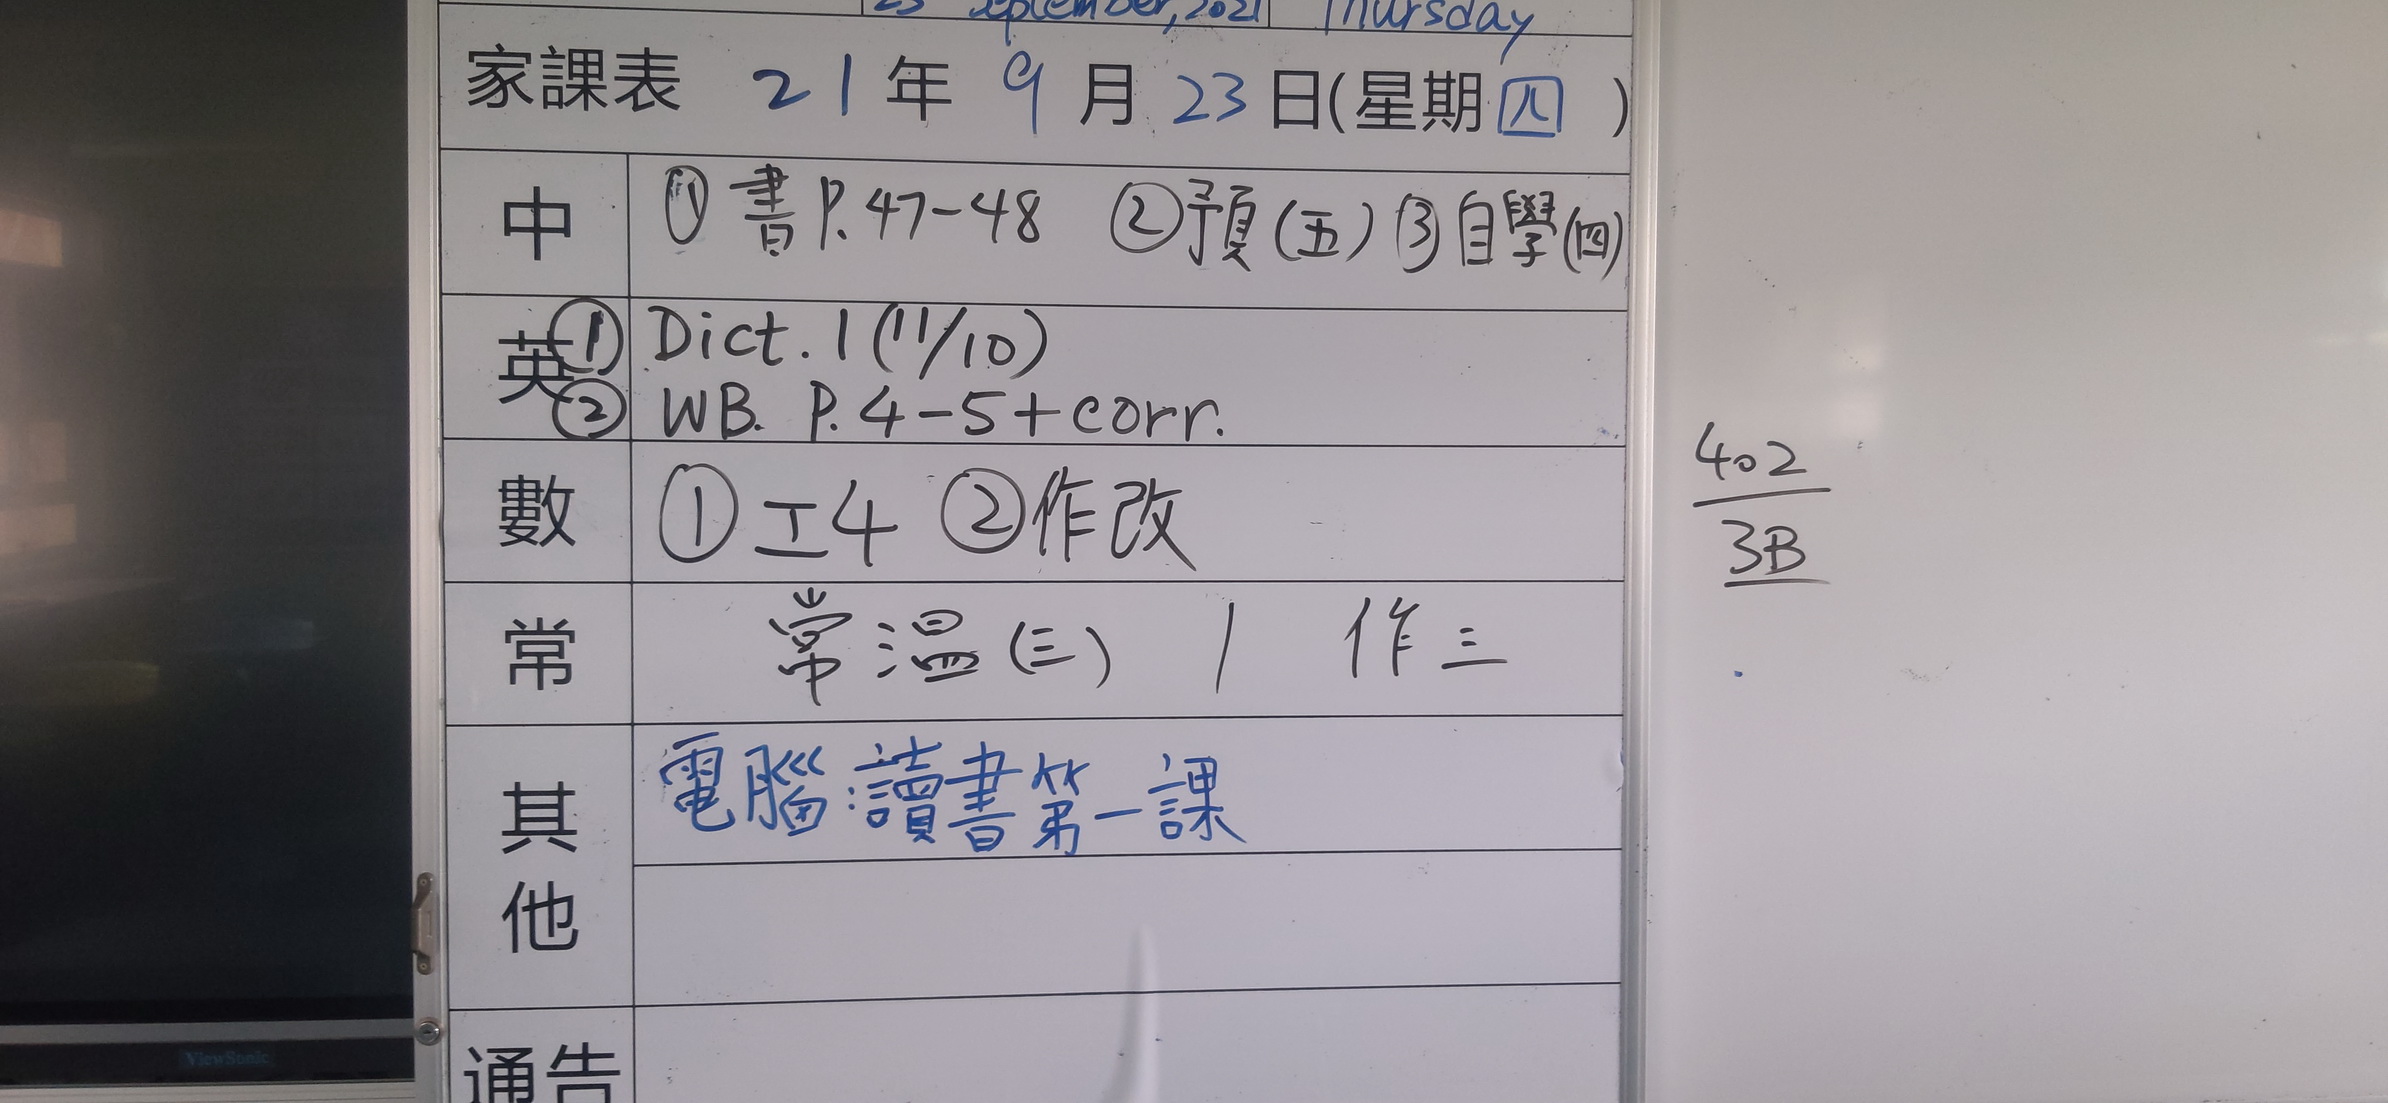 23 September, 2021 Thursday
家課表 21年9月23日(星期四)
中 ① 書P.47-48 ②預(五) ③自學(四)
英 ① Dict. 1 (11/10)
② WB. P.4-5+corr.
數 ①工4 ②作改
常 常溫(三) / 作三
其他 電腦:讀書第一課
通告
402
3B
ViewSonic